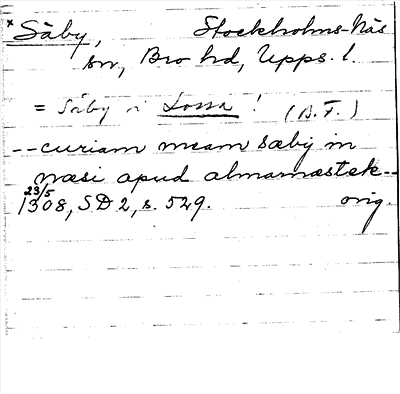 × Säby, Stockholms-Näs
sn, Bro hd, Upps. l.
= Säby i Lossa! (B.F.)
-- curiam meam sæby in
næsi apud almarnæstæk --
23/5
1308, SD 2, s. 529. orig.